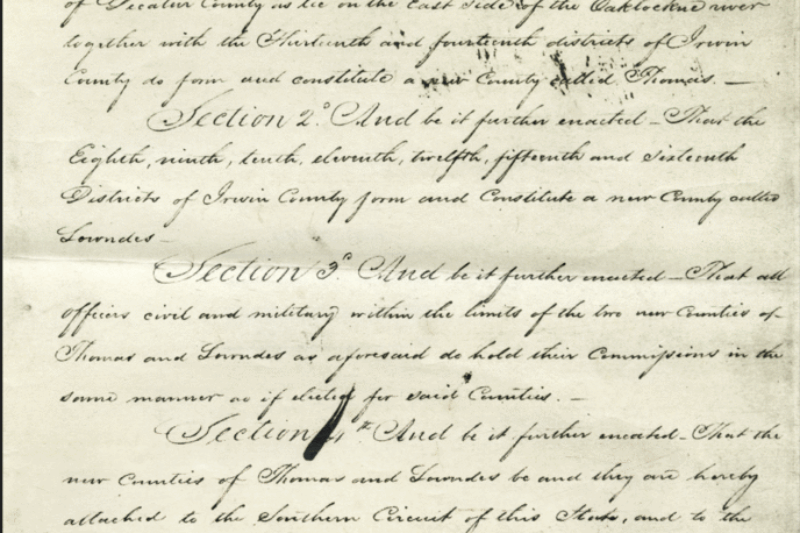 of Decatur County as lie on the East side of the Oaklockne river
together with the Thirteenth and fourteenth districts of Irwin
County do form and constitute a new County called Thomas. —
Section 2d. And be it further enacted – That the
Eighth, ninth, tenth, eleventh, twelfth, fifteenth and sixteenth
Districts of Irwin County form and Constitute a new County called
Lowndes –
Section 3d. And be it further enacted – That all
officers civil and military within the limits of the two new Counties of
Thomas and Lowndes as aforesaid do hold their Commissions in the
same manner as if elected for said Counties. –
Section 4th And be it further enacted – That the
new Counties of Thomas and Lowndes be and they are hereby
attached to the Southern Circuit of this State, and to the